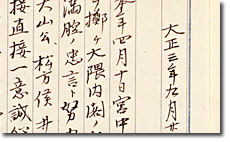 大正三年九月廿
本年四月十日宮中
ヲ擲ケ大隈内閣
満腔ノ忠言ト努力
大山公、松方侯井
接直接一意誠